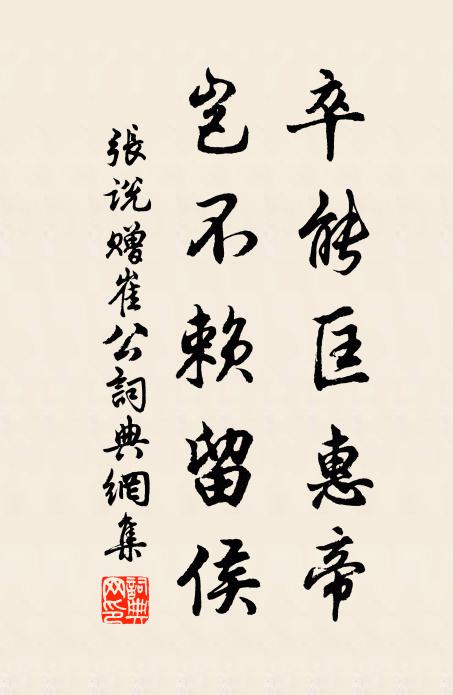 卒能匡惠帝
豈不賴留侯
張說贈崔公詞典網集
詞典网印